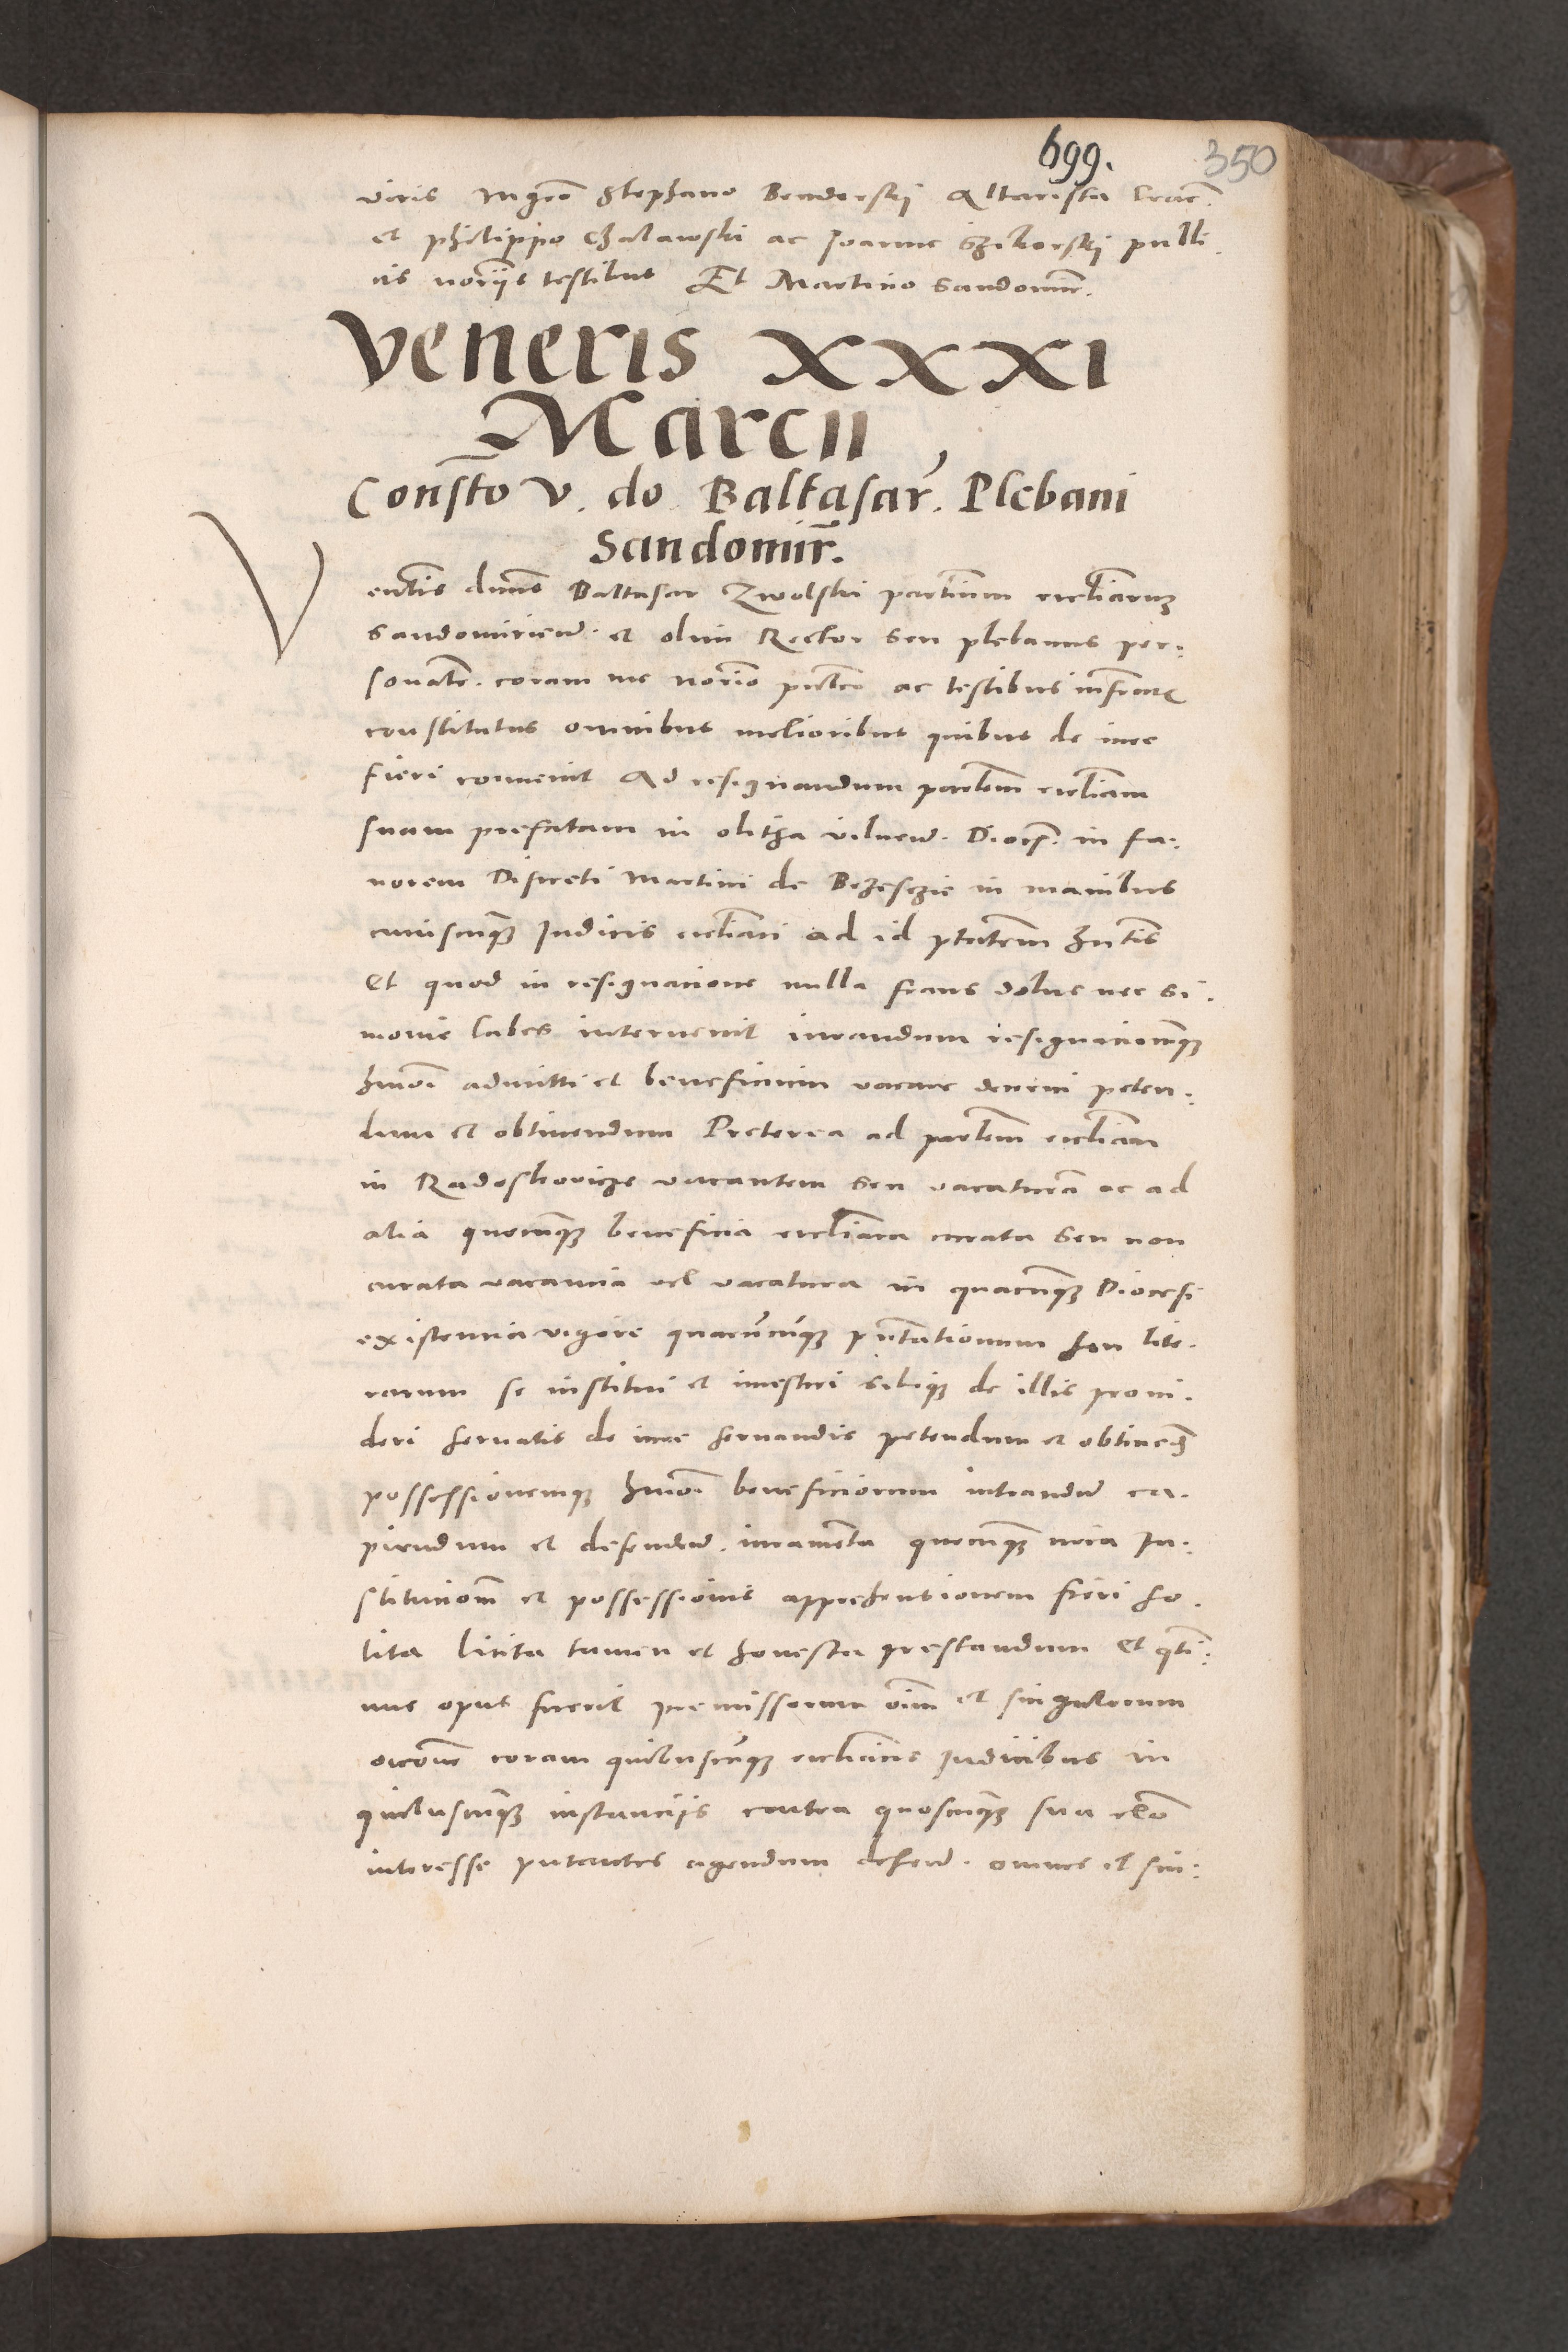 699. 350
viris Mgro Stephano Benderskij Altarista Crac.
et philippo Chalawski ac Joanne Szikorskij publi
cis noriis testibus Et Martino Sandomir.
Veneris XXXI
Marcii
Constō v. do. Baltasar. Plebani
Sandomir̄.
Venlis dnus Baltasar Zwolski partium ecclīarum
Sandomiriens. et olim Rector seu plebanus per
sonalr. coram me norio publco ac testibus infrascr
constitutus omnibus melioribus quibus de iure
fieri convenit Ad resignandum parolem ecclīam
suam prefatam in olitha vilnens. Diocs. in fa
uorem Discreti Martini de Bezesczie in manibus
cuiuscunq Judicis ecclīaci ad id ptatem hntis
Et quod in resignacione nulla fraus dolus nec si
monie labes intervenit iurandum resignacionemq
hmoi admitti et beneficium vacare decerni peten
dum et obtinendum Preterea ad parolem ecclīam
in Radoskovicze vacantem seu vacaturā ac ad
alia quecunq beneficia ecclīaca curata seu non
curata vacancia vel vacatura in quacunq Diocesi
existencia vigore quarūcūq pntationum seu lite
rarum se institui et investiri sibiq de illis provi
deri servatis de iure servandis petendum et obtinend
possessionemq hmoi beneficiorum intrandum ca
piendum et defendend. iuramenta quecunq circa In
stitucionem et possessionis apprehensionem fieri so
lita licita tamen et honesta prestandum Et qti
nus opus fuerit premissorum oim et singulorum
occone coram quibuscūq ecclīacis Judicibus in
quibuscunq instanciis contra quoscunq sua
interesse putantes agendum defend. omnes et sin